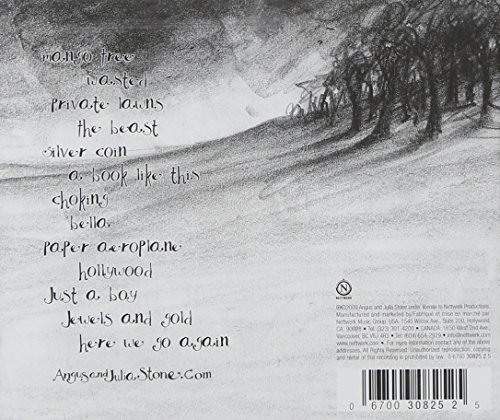 mango tree
wasted
private lawns
the beast
silver coin
a book like this
choking
bella
paper aeroplane
hollywood
just a boy
jewels and gold
here we go again
AngusandJuliaStone.Com
N
NETTWERK
℗©2009 Angus and Julia Stone under license to Nettwerk Productions.
Manufactured and marketed by/Fabriqué et mis en marché par
Nettwerk Music Group. USA: 1545 Wilcox Ave., Suite 200, Hollywood,
CA, 90028 • Tel: (323) 301-4200 • CANADA: 1650 West 2nd Ave.,
Vancouver, BC V6J 4R3 • Tel: (604) 654-2929 • www.nettwerk.com
www.nettwerk.com • For more information contact any of the above
addresses. All Rights Reserved. Unauthorized reproduction, copying
and rental of this recording is prohibited by law. 0 6700 30825 2 5
0 67003 08252 5